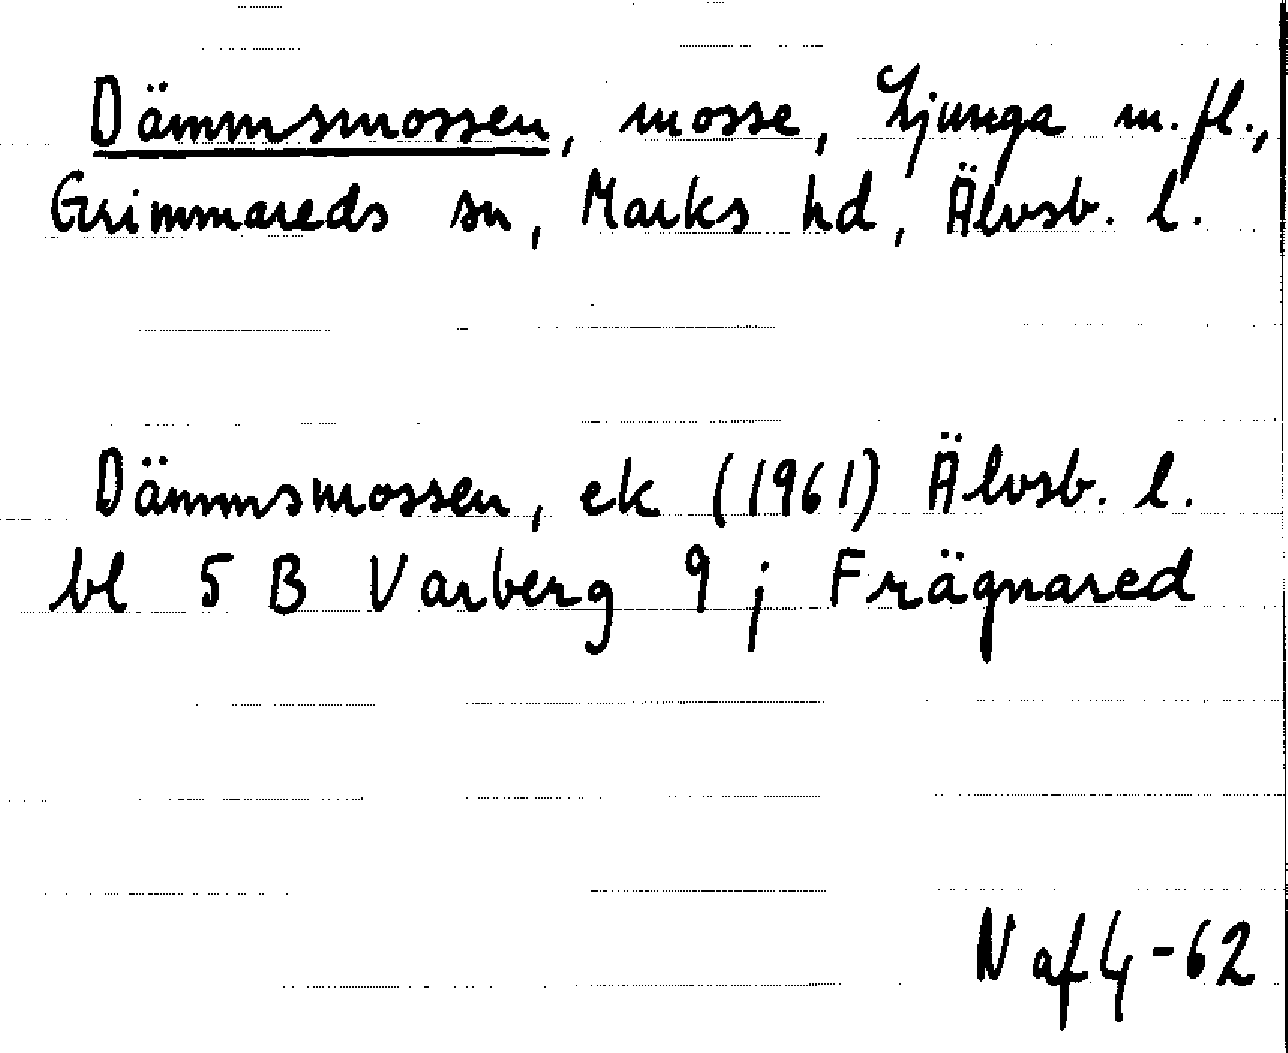 Dämmsmossen, mosse, Ljunga m.fl.,
Grimmareds sn, Marks hd, Älvsb. l.
Dämmsmossen, ek (1961) Älvsb. l.
bl 5 B Varberg 9 j Frägnared
N af Lj -62